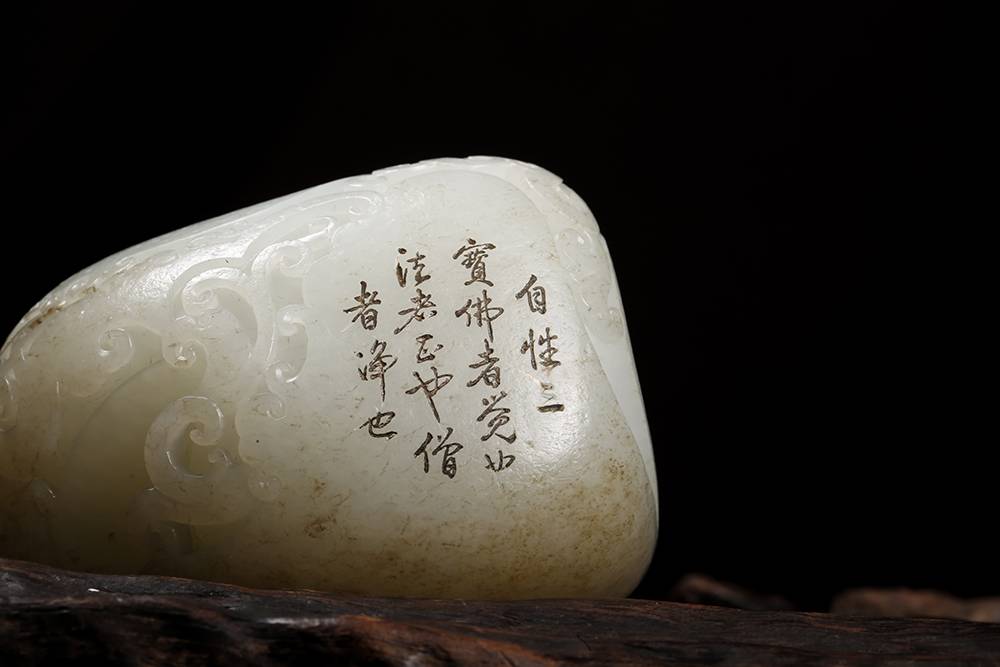 自性三
寶佛者觉也
法者正也僧
者淨也